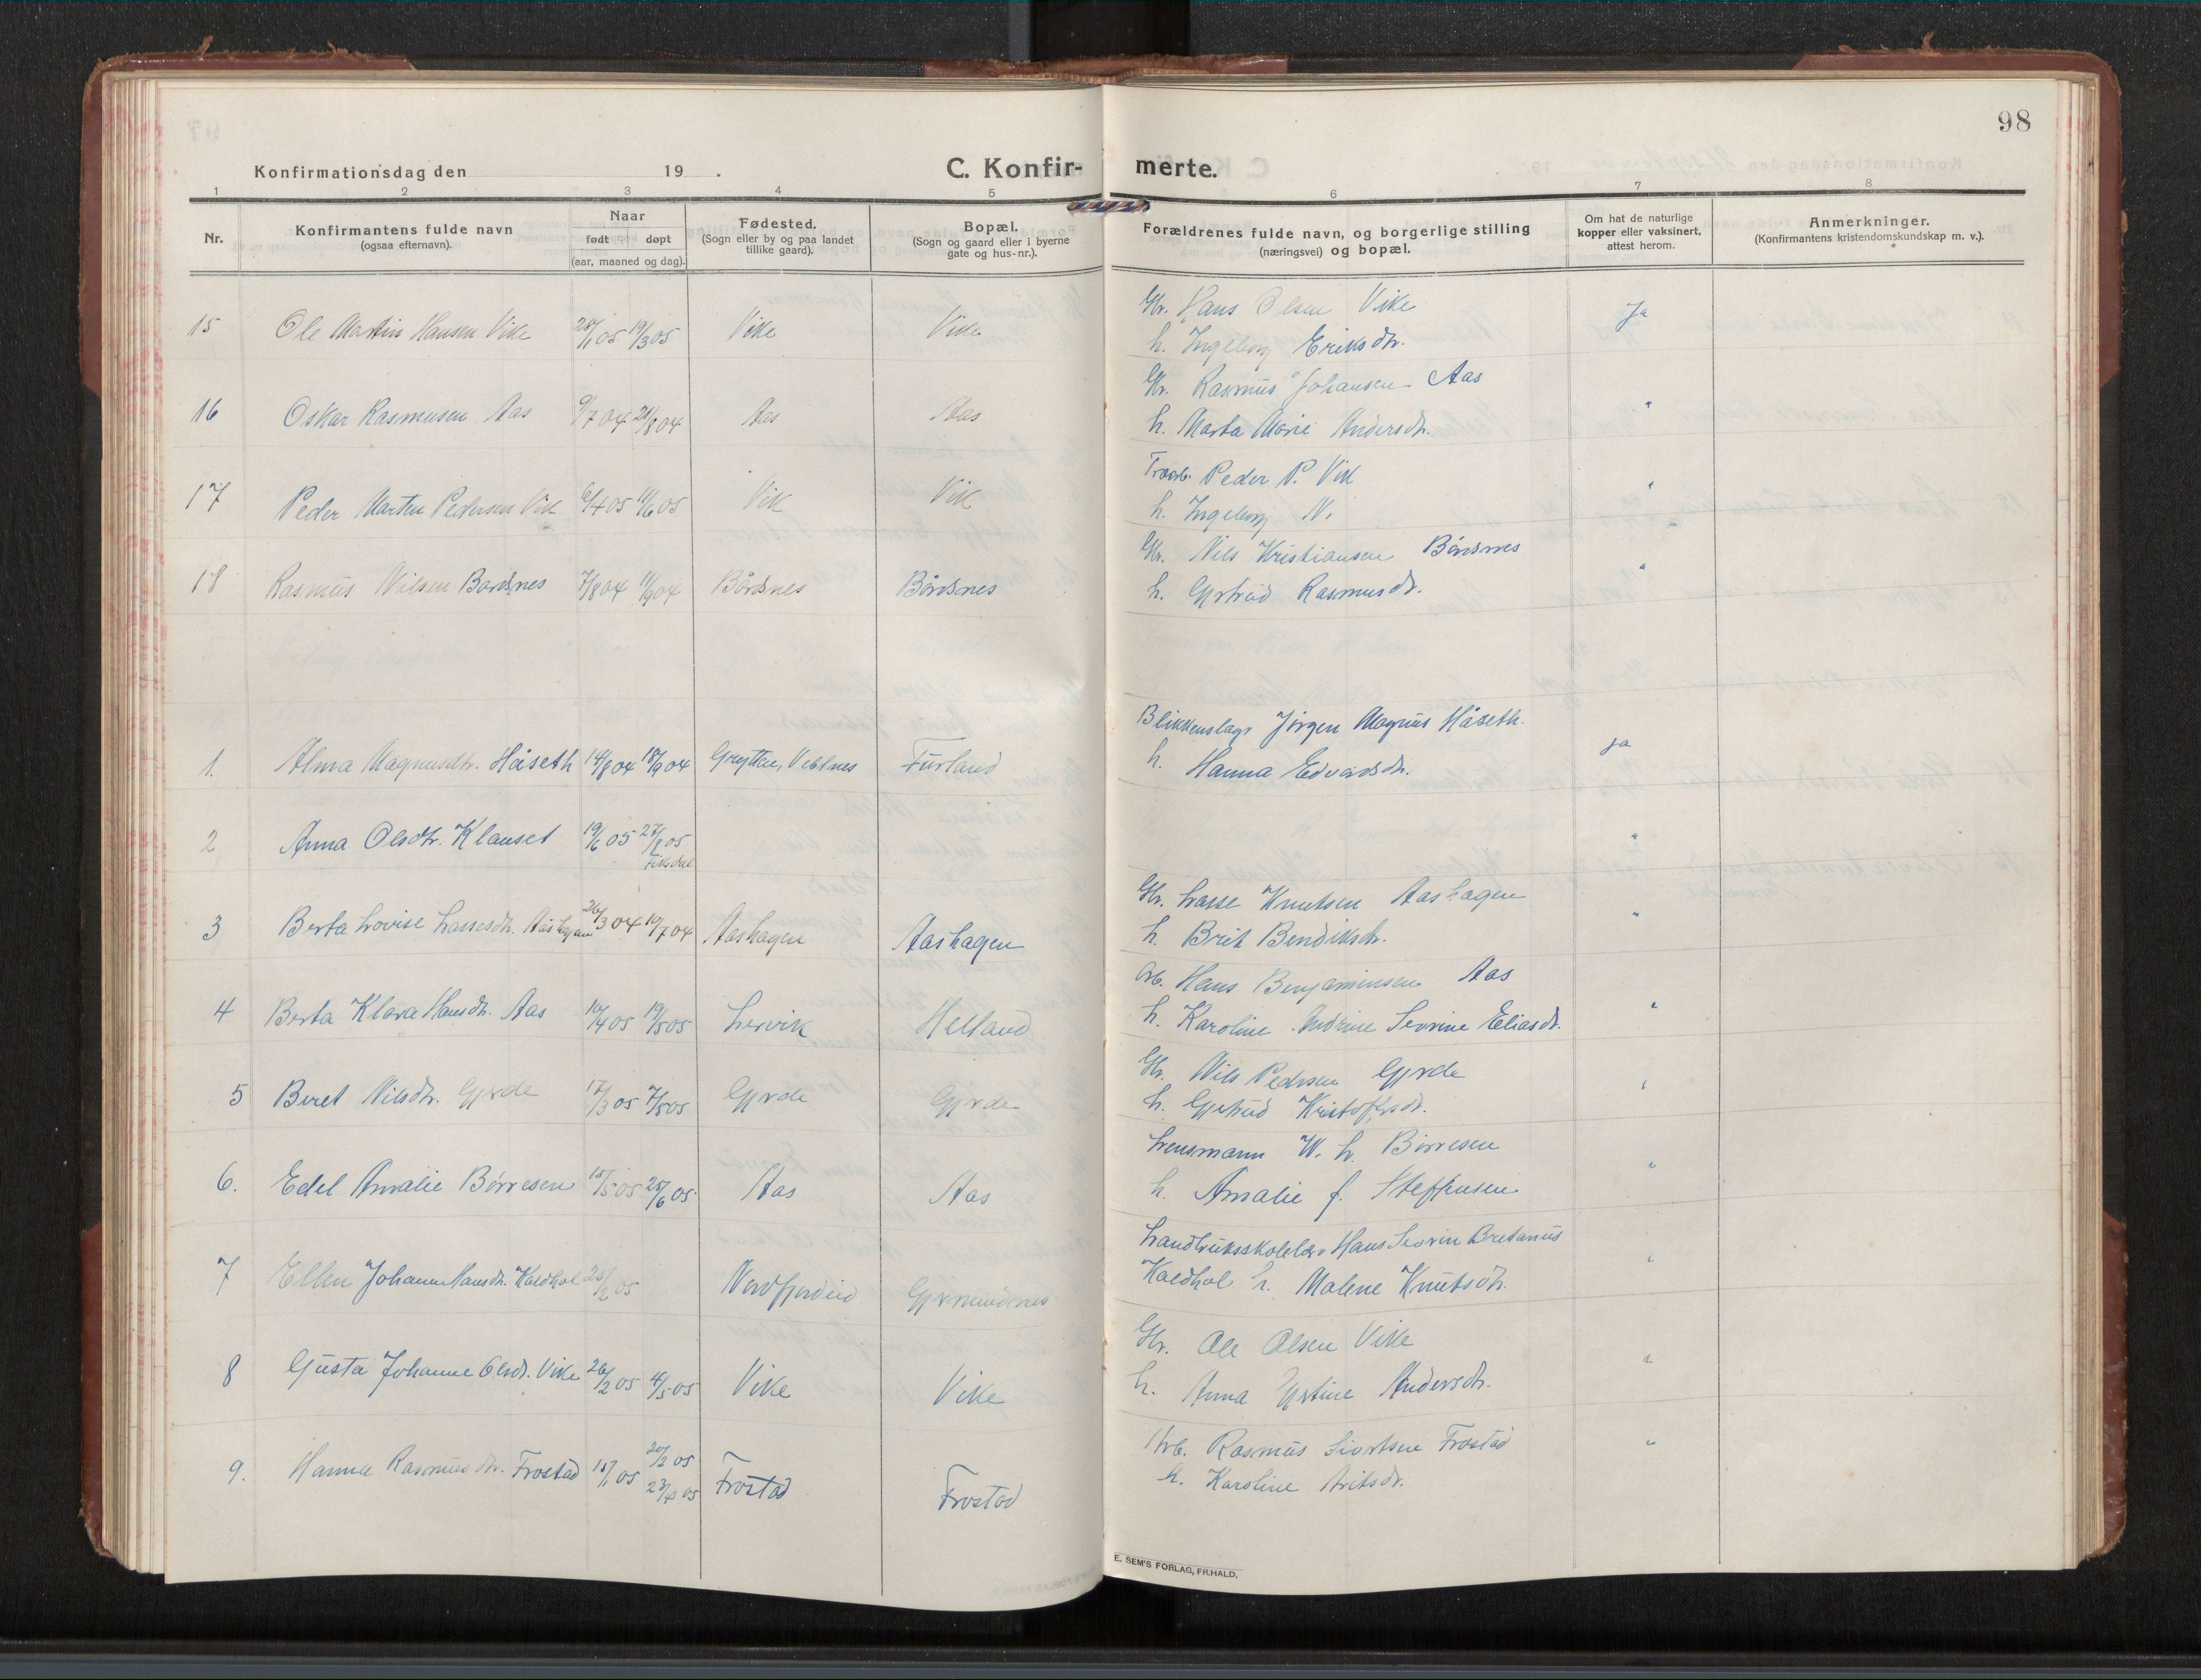 98
Konfirmationsdag den 19 .
C. Konfir- merte.
1 2 3 4 5 6 7 8
Nr.
Konfirmantens fulde navn
(ogsaa efternavn).
Naar
født døpt
(aar, maaned og dag).
Fødested.
(Sogn eller by og paa landet
tillike gaard).
Bopæl.
(Sogn og gaard eller i byerne
gate og hus-nr.).
Forældrenes fulde navn, og borgerlige stilling
(næringsvei) og bopæl.
Om hat de naturlige
kopper eller vaksinert,
attest herom.
Anmerkninger.
(Konfirmantens kristendomskundskap m. v.).
15 Ole Martin Hansen Vike 28/1 05 19/3 05 Vike Vike Gbr. Hans Olsen Vike Ja
h. Ingeborg Eriksdtr.
16 Oskar Rasmusen Aas 9/7 04 21/8 04 Aas Aas Gbr. Rasmus Johansen Aas "
h. Marta Marie Andersdtr.
17 Peder Marten Pedersen Vik 6/4 05 11/6 05 Vik Vik Peder P. Vik "
h. Ingeborg N.
18 Rasmus Nilsen Bardsnes 7/8 04 11/9 04 Bårdsnes Bårdsnes Gbr. Nils Kristiansen Bårdsnes "
h. Gjertrud Rasmusdtr.
1. Alma Magnusdtr. Håseth 14/8 04 18/9 04 Grytten, Veblnes Furland Blikkenslagr Jørgen Magnus Håseth. ja
h. Hanna Edvardsdtr.
2 Anna Olsdtr. Klauset 19/6 05 27/8 05 "
Fiksdal
3 Berta Lovise Lassesdtr. Aashagen 26/3 04 10/7 04 Aashagen Aashagen Gbr. Lasse Knutsen Aashagen "
h. Brit Bendiksdtr.
4 Berta Klara Hansdtr. Aas 10/4 05 19/5 05 Lervik Helland Arb. Hans Benjaminsen Aas "
h. Karoline Andrine Sevrine Eliasdtr.
5 Beret Nilsdtr. Gjerde 17/3 05 7/5 05 Gjerde Gjerde Gbr. Nils Pedersen Gjerde "
h. Gjertrud Kristoffersdtr.
6. Edel Amalie Børresen 15/5 05 25/6 05 Aas Aas Lensmann W. L. Børresen "
h. Amalie f. Steffensen
7 Ellen Johanne Hansdtr. Kaldhol 25/2 05 Nordfjordeid Gjermundnes Landbruksskolelær Hans Sevrin Bretanius "
Kaldhol h. Malene Knutsdtr.
8 Gusta Johanne Olsdtr. Vike 26/2 05 4/5 05 Vike Vike Gbr. Ole Olsen Vike "
h. Anna Gjertine Andersdtr.
9. Hanna Rasmusdtr. Frostad 15/1 05 20/2 05 Frostad Frostad Arb. Rasmus Sivertsen Frostad "
23/4 05 h. Karoline
E. SEM'S FORLAG, FR.HALD.